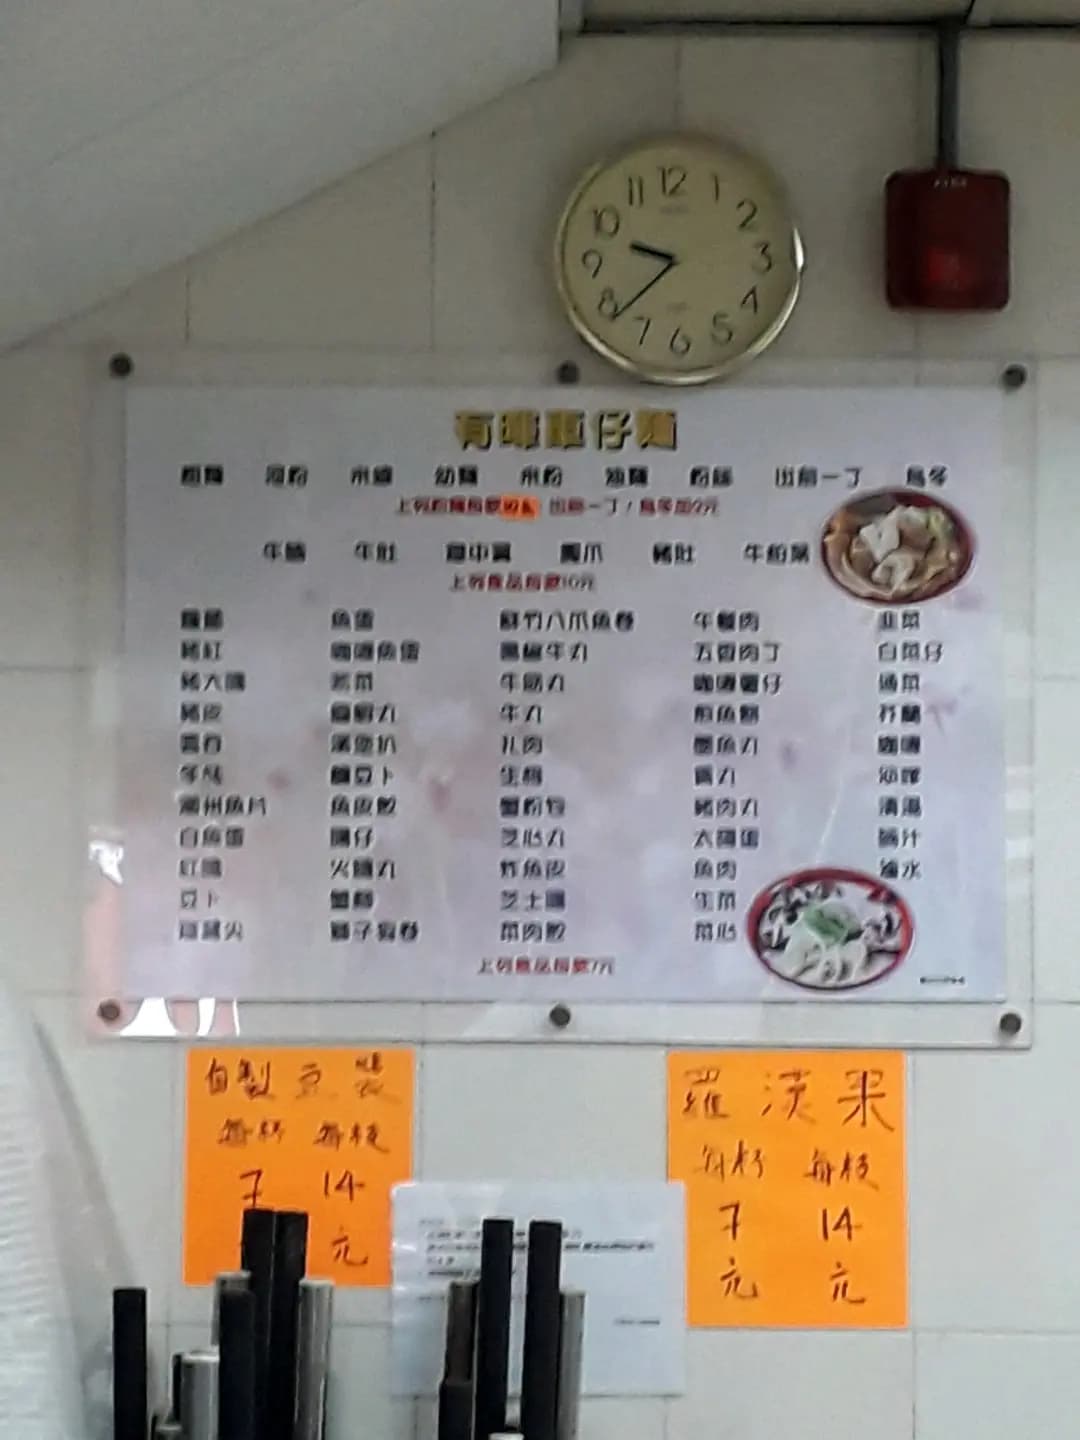 12
11 1
10 2
9 3
8 4
7 5
6
有啡車仔麵
粗麵 河粉 米線 幼麵 米粉 油麵 粉絲 出前一丁 烏冬
上列粉麵每款 出前一丁/烏冬加2元
牛腩 牛肚 鳳爪 豬肚 牛柏葉
上列食品每款10元
魚蛋 鮮竹八爪魚卷 午餐肉 韭菜
豬紅 咖喱魚蛋 黑椒牛丸 五香肉丁 白菜仔
豬大腸 紫菜 牛筋丸 咖喱薯仔 通菜
豬皮 牛丸 煎魚餅 芥蘭
雲吞 漢堡扒 扎肉 墨魚丸 咖喱
冬菇 豆卜 生根 貢丸 沙嗲
潮州魚片 魚皮餃 蟹粉 豬肉丸 清湯
白魚蛋 腸仔 芝心丸 太陽蛋
紅腸 火腩丸 炸魚皮 魚肉 滷水
豆卜 蟹柳 芝士腸 生菜
獅子狗卷 菜肉餃 菜心
上列食品每款7元
自製豆漿
每杯 每枝
7 14
元
羅漢果
每杯 每枝
7 14
元 元